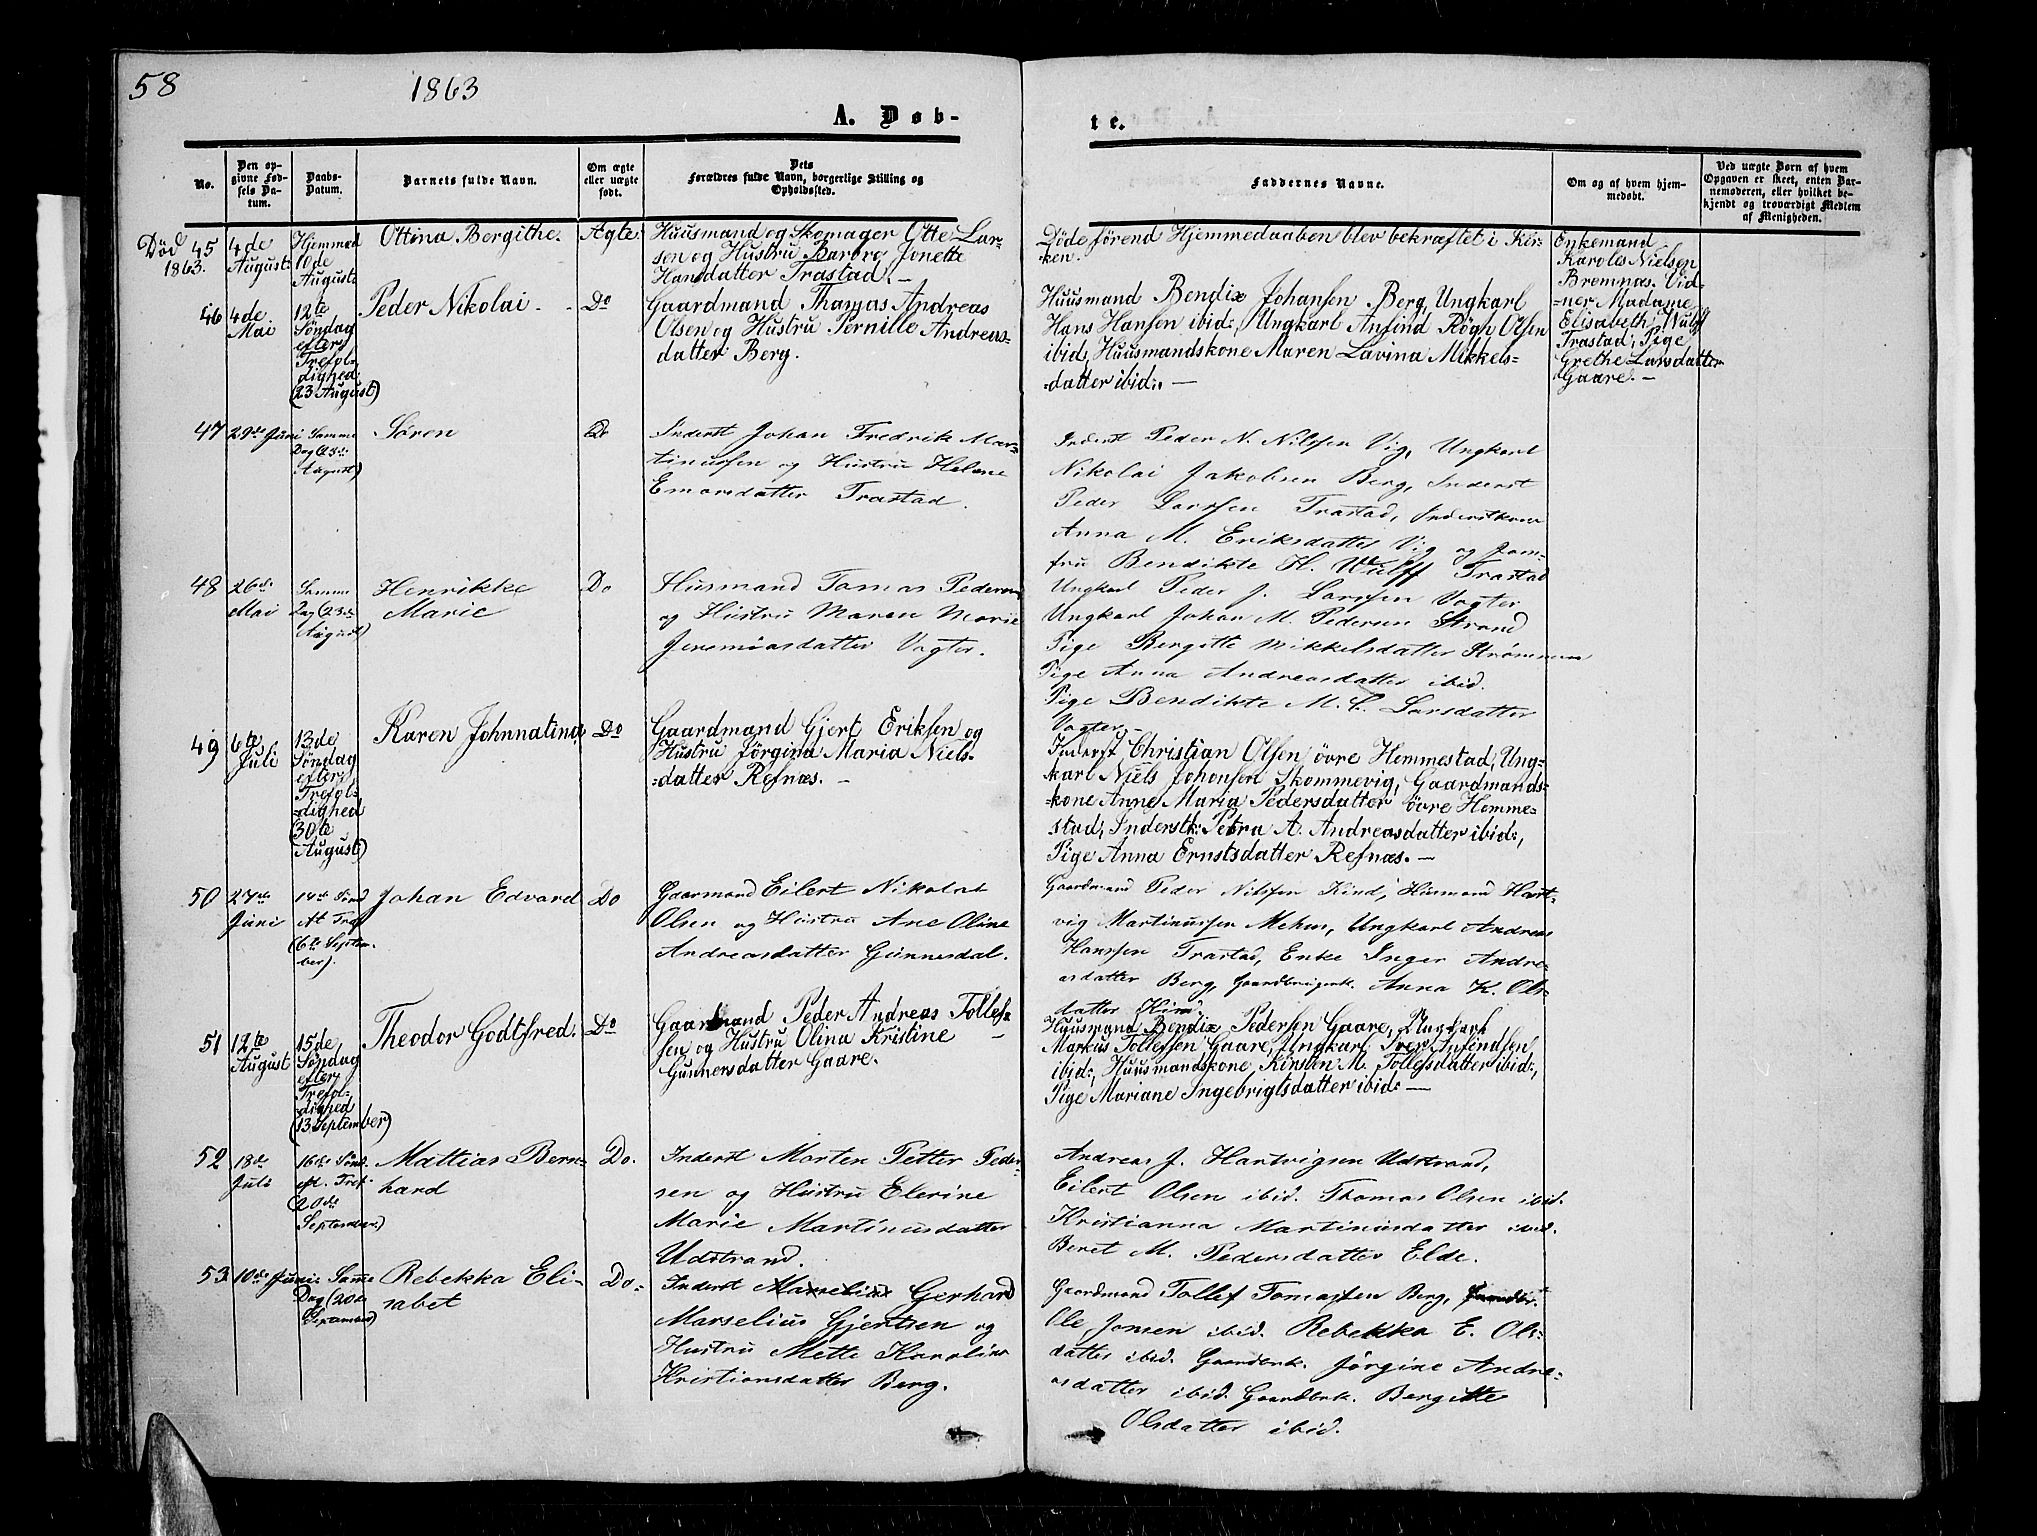 58
1863
A. Døb-
te.
No.
Den op-
givne Fød-
sels Da-
tum.
Daabs-
Datum.
Barnets fulde Navn.
Om ægte
eller uægte
født.
Dets
Forældres fulde Navn, borgerlige Stilling og
Opholdssted.
Faddernes Navne.
Om og af hvem hjem-
medøbt.
Ved uægte Børn af hvem
Opgaven er skeet, enten Bar-
nemoderen, eller hvilket be-
kjendt og troværdigt Medlem
af Menigheden.
Død 45
1863.
4de
August
Hjemmed
10de
August
Ottina Bergithe.
Ægte
Huusmand og Skomager Otte Lar-
sen og Hustru Barbro Jonette
Hansdatter Trastad. —
Döde förend Hjemmedaaben blev bekræftet i Kir-
ken.
Enkemand
Karoles Nielsen
Bremnæs. Vid-
ner Madame
Elisabeth Wulff
Trastad, Pige
Grethe Larsdatter
Gaare. —
46
4de
Mai
12te
Söndag
efter
Trefol-
dighed
(23 August)
Peder Nikolai -
Do
Gaardmand Thomas Andreas
Olsen og Hustru Pernille Andreas-
datter Berg.
Huusmand Bendix Johansen Berg, Ungkarl
Hans Hansen ibid:, Ungkarl Anfind Rögh Olsen
ibid, Huusmandskone Maren Lavina Mikkels-
datter ibid:. —
47
29de Juni
Samme
Dag (23de
August)
Sören
Do
Inderst Johan Fredrik Mar-
tinussen og Hustru Helene
Emarsdatter Trastad.
Inderst Peder N. Nilssen Vig, Ungkarl
Nikolai Jakobsen Berg, Inderst
Peder Larssen Trastad, Inderstkone
Anna M. Eriksdatter Vig og Jom-
fru Bendikte H. Wulff Trastad
48
26de
Mai
Samme
Dag (23de
August)
Henrikke
Marie
Do
Husmand Tomas Pedersen
og Hustru Maren Marie
Jeremiasdatter Vogter.
Ungkarl Peder J. Larssen Vogter
Ungkarl Johan M. Pedersen Strand
Pige Bergitte Mikkelsdatter Strømmen
Pige Anna Andreasdatter ibid.
Pige Bendikte M. C. Larsdatter
Vogter
49
6te
Juli
13de
Söndag
efter
Trefol-
dighed
(30te
August)
Karen Johnnatina
Do
Gaardmand Gjert Eriksen og
Hustru Jörgina Maria Niels-
datter Refnæs. —
Inderst Christian Olsen övre Hemmestad, Ung-
karl Niels Johonsen Skommevig, Gaardmands-
kone Anne Maria Pedersdatter övre Hemme-
stad, Inderstk: Petra A. Andreasdatter ibid:,
Pige Anna Ernstsdatter Refnæs. —
50
27de
Juni
14de Sönd
At Tref
(6te Septem-
ber).
Johan Edvard
Do
Gaarmand Eilert Nikolai
Olsen og Hustru Ane Oline
Andreasdatter Gunnesdal.
Gaardmand Peder Nilssen Kind, Husmand Hart-
vig Martinussen Mehus, Ungkarl Andreas
Hanssen Trastad, Enke Inger Andre-
asdatter Berg, Gaardbrugerk. Anna K. Ols-
datter Kind,
51
12te
August
15de
Söndag
efter
Trefol-
dighed
(13 September)
Theodor Godtfred.
Do
Gaardmand Peder Andreas Tollef-
sen og Hustru Olina Kristine —
Gunnersdatter Gaare.
Huusmand Bendix Pedersen Gaare, Ungkarl
Markus Tollefsen Gaare, Ungkarl Iver Anfendsen
ibid:, Huusmandskone Kirsten M. Tollefsdatter ibid:,
Pige Mariane Ingebrigtsdatter ibid: —
52
18de
Juli
16de Sönd.
eft. Tref.
(20de
September)
Mattias Bern-
hard
Do.
Inderst Morten Petter Peder-
sen og Hustru Elerine
Marie Martinusdatter
Udstrand.
Andreas J. Hartvigsen Udstrand,
Eilert Olsen ibid. Thomas Olsen ibid.
Kristianna Martinusdatter ibid.
Beret M. Pedersdatter Elde.
53
10de Juni
Samme
Dag (20de
September)
Rebekka Eli-
sabet
Do.
Inderst Marselius Gerhard
Marselius Gjertsen og
Hustru Mette Karoline
Kristiansdatter Berg.
Gaardmand Tollef Tomassen Berg, Gaardbr.
Ole Jonsen ibid. Rebekka E. Ols-
datter ibid. Gaardbrk. Jörgine Andre-
asdatter ibid. Gaardbrk. Bergitte
Olsdatter ibid.